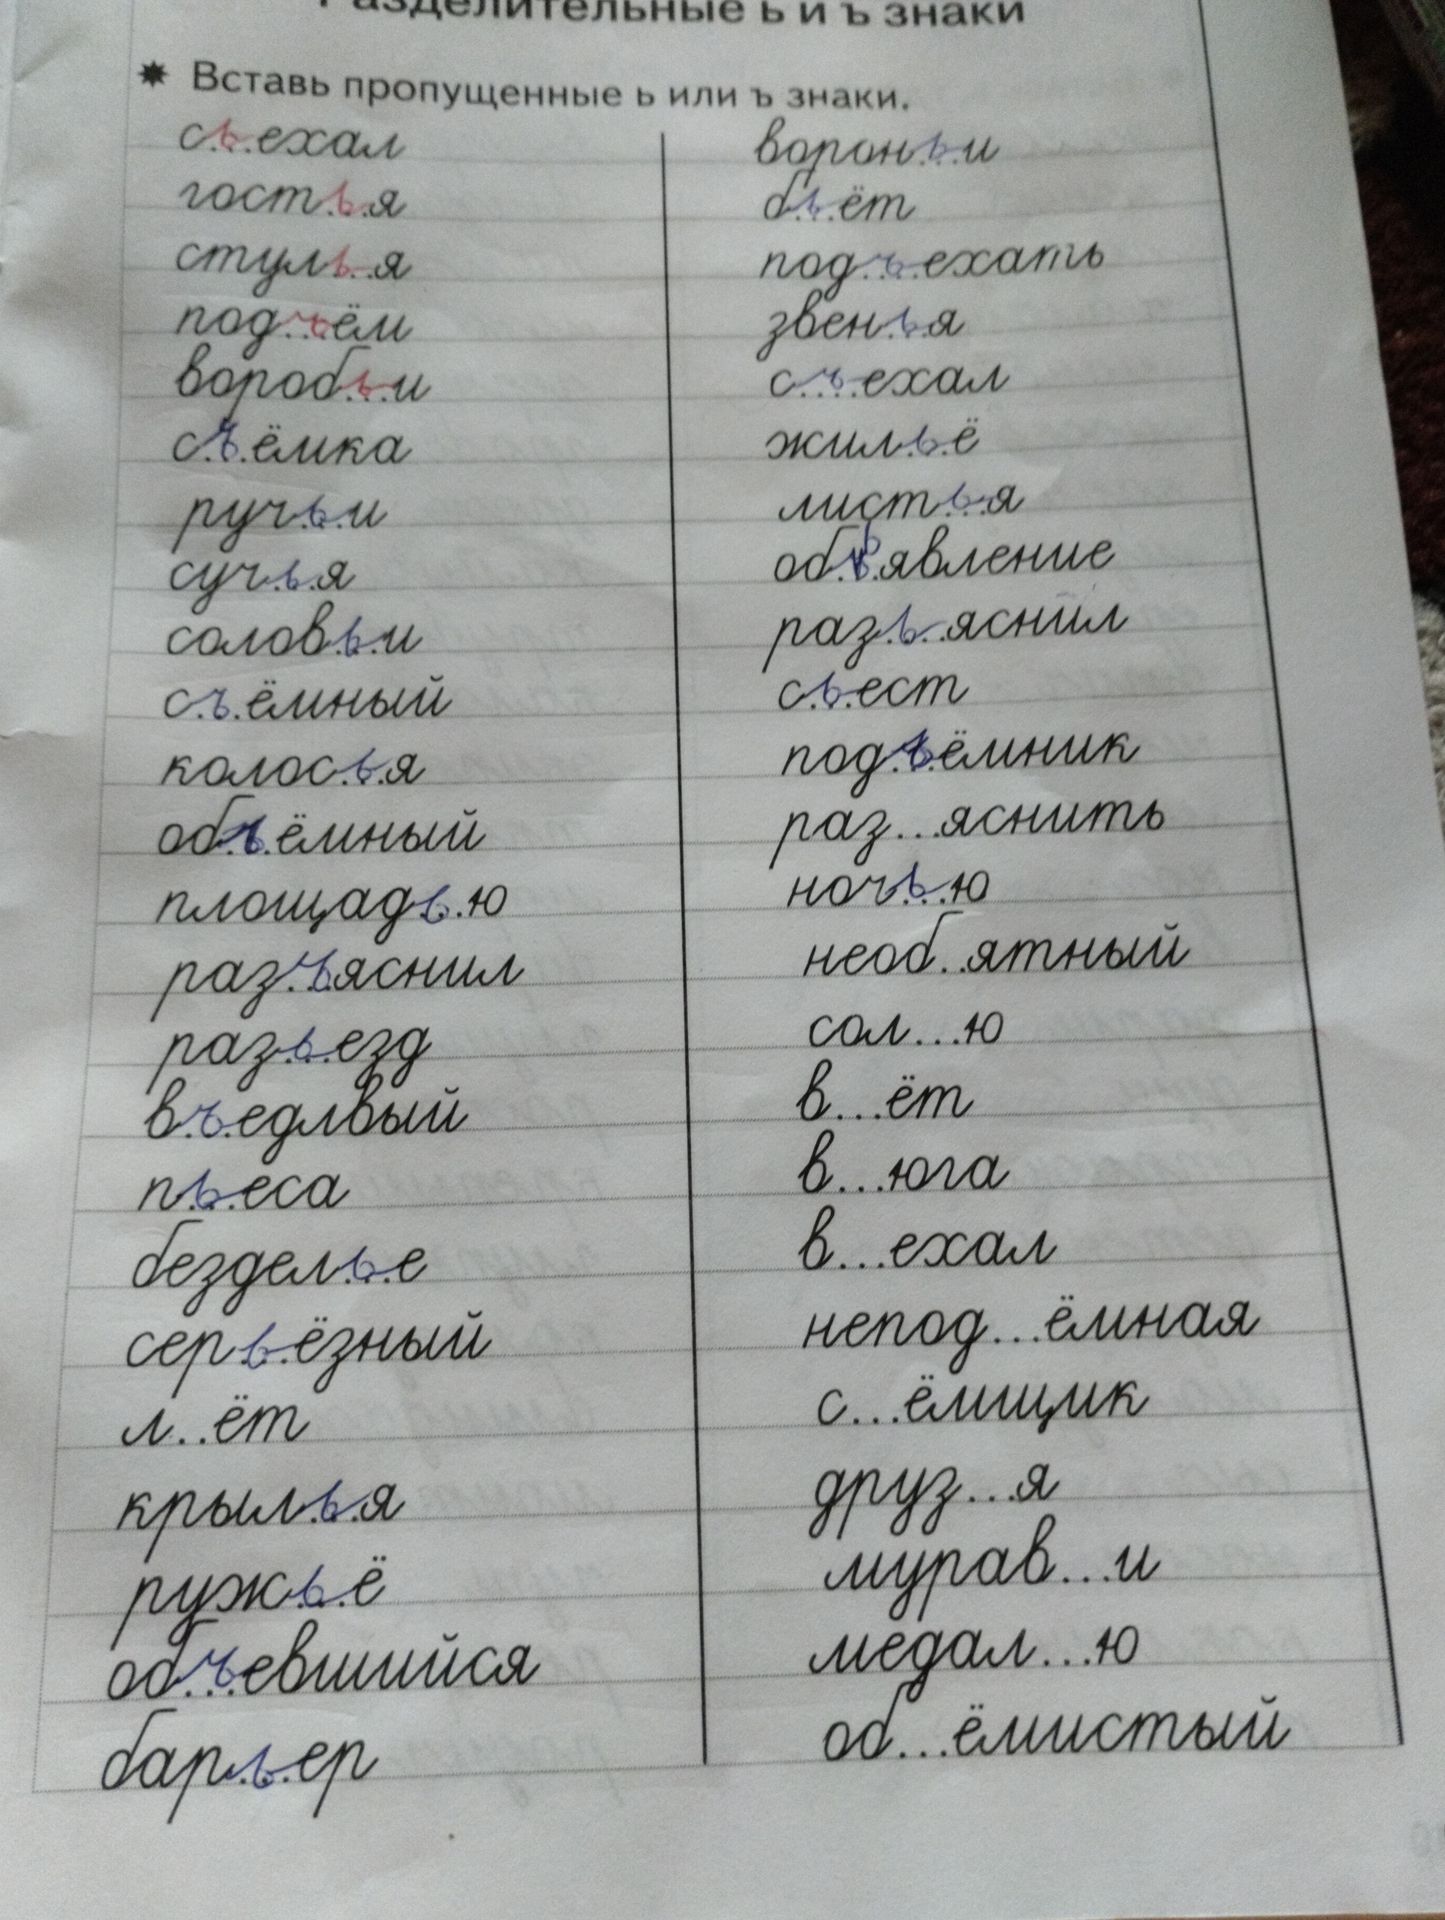 Разделительные ь и ъ знаки
Вставь пропущенные ь или ъ знаки.
сьехал
гостья
стулья
подъём
воробьи
съёмка
ручьи
сучья
соловьи
съёмный
колосья
объёмный
площадью
разъяснил
разьезд
въедлвый
пьеса
безделье
серьёзный
л..ёт
крылья
ружьё
объевшийся
барьер
вороньи
бьёт
подъехать
звенья
съехал
жильё
листья
объявление
разьяснил
сьест
подъёмник
раз...яснить
ночью
необ..ятный
сол...ю
в...ёт
в...юга
в...ехал
непод...ёмная
с...ёмщик
друз...я
мурав...и
медал...ю
об...ёмистый